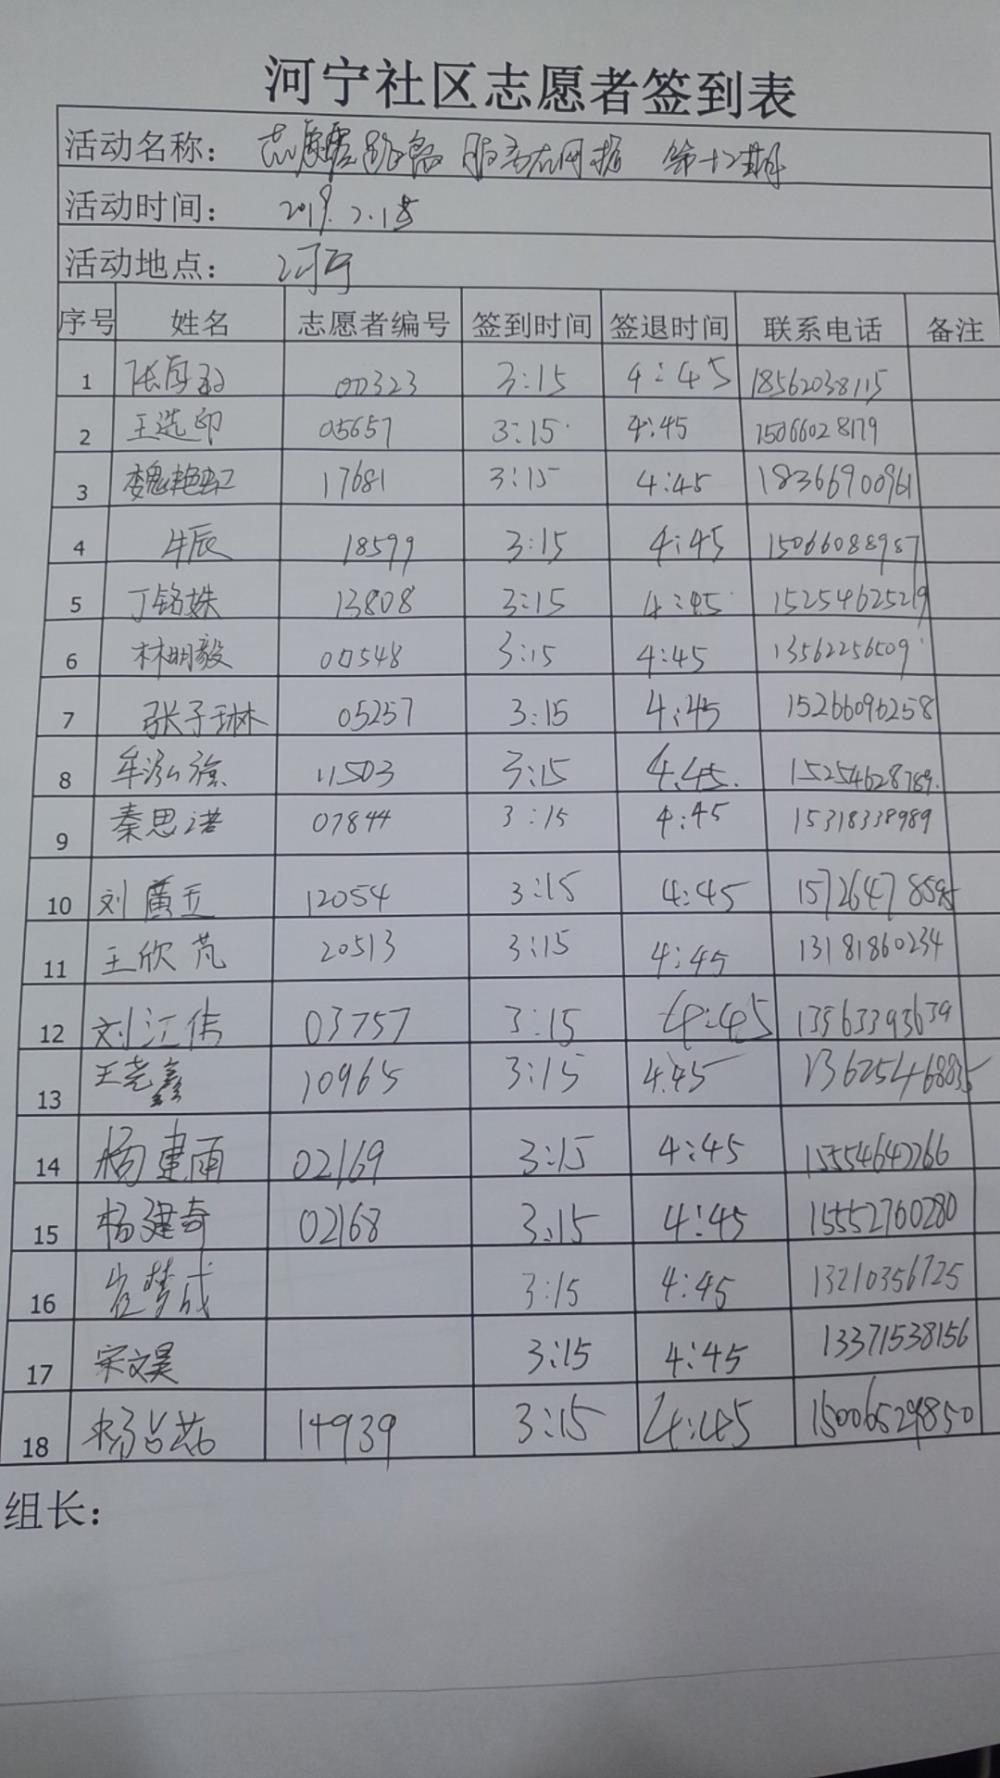 河宁社区志愿者签到表
活动名称： 志愿 服务在网格 第十二期
活动时间： 2019.2.18
活动地点： 河宁
序号 姓名 志愿者编号 签到时间 签退时间 联系电话 备注
1 00323 3:15 4:45 18562038115
2 王选印 05657 3:15 4:45 15066028179
3 魏艳虹 17681 3:15 4:45 18366900961
4 牛辰 18599 3:15 4:45 15066088987
5 丁铭姝 13808 3:15 4:45 15254625219
6 林明毅 00548 3:15 4:45 13562256509
7 张子琳 05257 3:15 4:45 15266096258
8 牟泓 11503 3:15 4:45 15254628789
9 秦思诺 07844 3:15 4:45 15318338989
10 刘廣 12054 3:15 4:45 15726478595
11 王欣芃 20513 3:15 4:45 13181860234
12 刘江伟 03757 3:15 4:45 13563393639
13 王尧鑫 10965 3:15 4:45 13625468835
14 杨建雨 02169 3:15 4:45 15554642266
15 杨建奇 02168 3:15 4:45 15552760280
16 崔梦成 3:15 4:45 13210356725
17 宋文昊 3:15 4:45 13371538156
18 杨 14939 3:15 4:45 15006529850
组长：